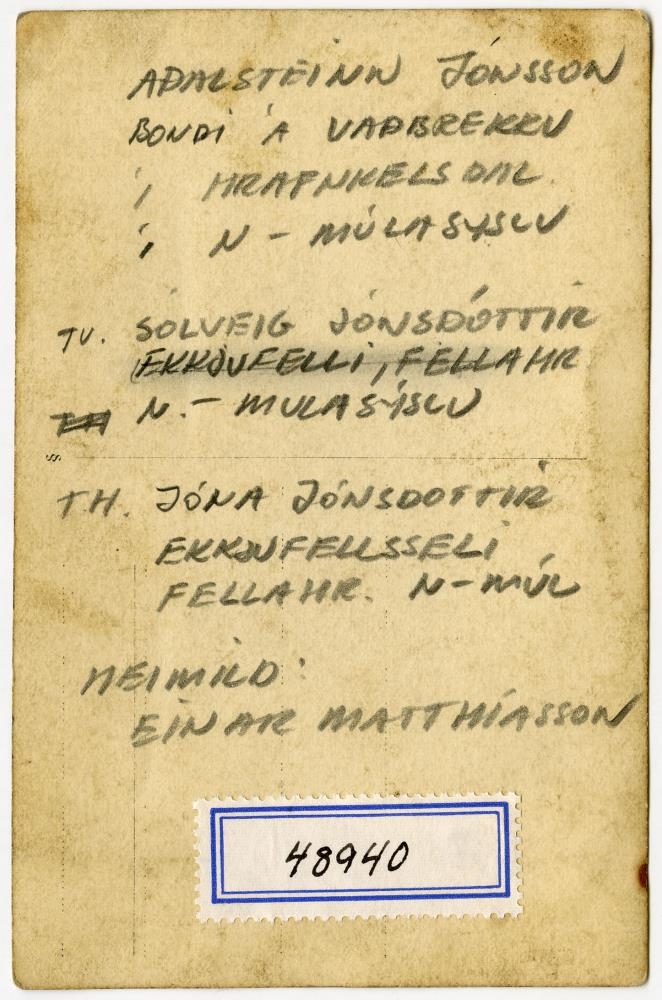 AÐALSTEINN JÓNSSON
BONDI Á VAÐBREKKU
Í HRAFNKELSDAL
Í N - MÚLASÝSLU
TV. SÓLVEIG JÓNSDÓTTIR
EKKJUFELLI, FELLAHR
N. - MULASÝSLU
TH. JÓNA JÓNSDOTTIR
EKKJUFELLSSELI
FELLAHR. N - MÚL
HEIMILD:
EINAR MATTHÍASSON
48940